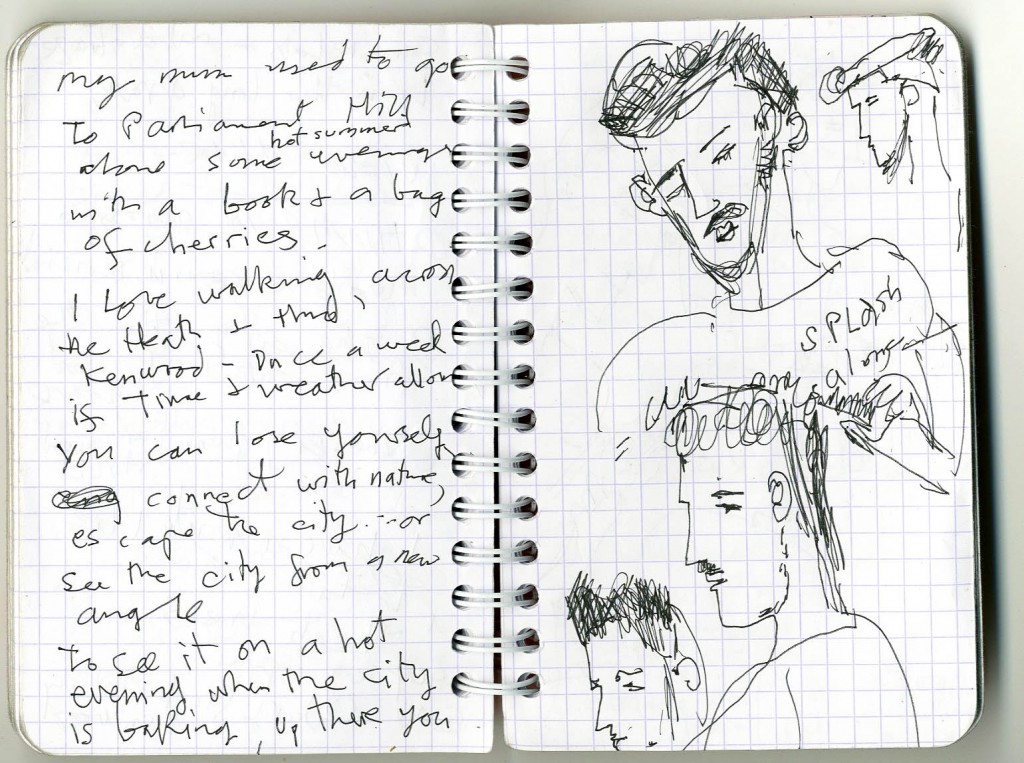 my mum used to go
to Parliament Hill
hot summer
alone some evenings
with a book & a bag
of cherries.
I love walking across
the Heath & thro'
Kenwood - Once a week
is time & weather allow
You can lose yourself,
connect with nature,
escape the city... or
see the city from a new
angle
to see it on a hot
evening when the city
is baking, up there you
SPLOSh